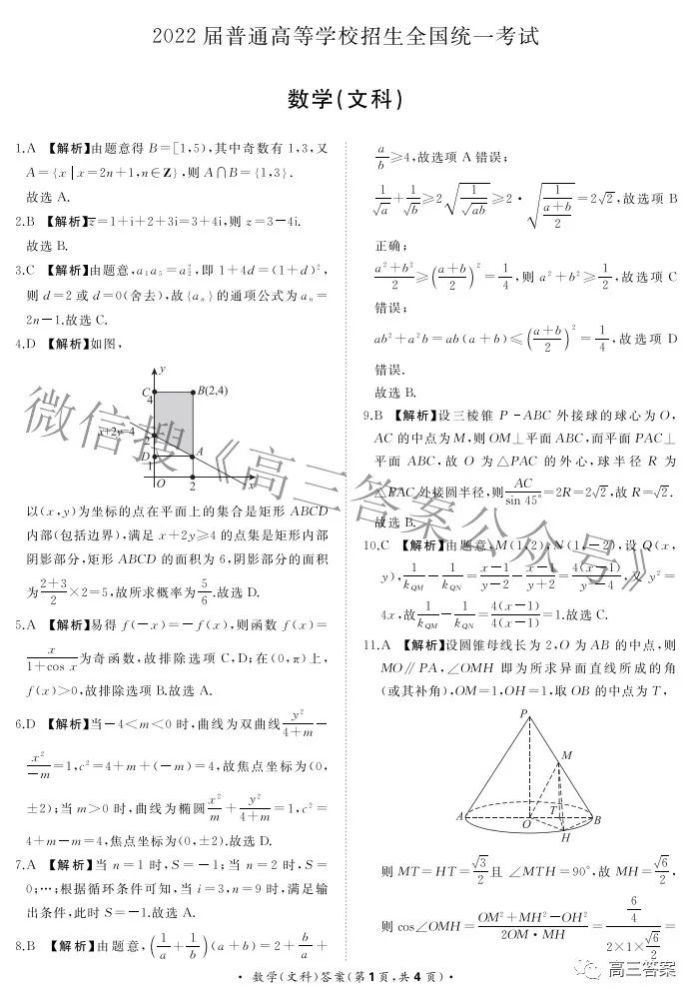 2022 届普通高等学校招生全国统一考试
数学(文科)
1.A 【解析】由题意得 B=[1,5),其中奇数有 1,3,又
A={x|x=2n+1,n∈Z},则 A∩B={1,3}.
故选 A.
2.B 【解析】z̅=1+i+2+3i=3+4i,则 z=3-4i.
故选 B.
3.C 【解析】由题意,a₁a₅=a₂²,即 1+4d=(1+d)²,
则 d=2 或 d=0(舍去),故{aₙ}的通项公式为 aₙ=
2n-1.故选 C.
4.D 【解析】如图,
y
C
4
B(2,4)
x+2y=4
2
D
1
A
O
2
x
以(x,y)为坐标的点在平面上的集合是矩形 ABCD
内部(包括边界),满足 x+2y≥4 的点集是矩形内部
阴影部分,矩形 ABCD 的面积为 6,阴影部分的面积
为(2+3)/2×2=5,故所求概率为 5/6.故选 D.
5.A 【解析】易得 f(-x)=-f(x),则函数 f(x)=
x/(1+cos x)为奇函数,故排除选项 C,D;在(0,π)上,
f(x)>0,故排除选项 B.故选 A.
6.D 【解析】当-4<m<0 时,曲线为双曲线 y²/(4+m)-
x²/(-m)=1,c²=4+m+(-m)=4,故焦点坐标为(0,
±2);当 m>0 时,曲线为椭圆 x²/m+y²/(4+m)=1,c²=
4+m-m=4,焦点坐标为(0,±2).故选 D.
7.A 【解析】当 n=1 时,S=-1;当 n=2 时,S=
0;…;根据循环条件可知,当 i=3,n=9 时,满足输
出条件,此时 S=-1.故选 A.
8.B 【解析】由题意,(1/a+1/b)(a+b)=2+b/a+
a/b≥4,故选项 A 错误;
1/√a+1/√b≥2√(1/√(ab))≥2·√(1/((a+b)/2))=2√2,故选项 B
正确;
(a²+b²)/2≥((a+b)/2)²=1/4,则 a²+b²≥1/2,故选项 C
错误;
ab²+a²b=ab(a+b)≤((a+b)/2)²=1/4,故选项 D
错误.
故选 B.
9.B 【解析】设三棱锥 P-ABC 外接球的球心为 O,
AC 的中点为 M,则 OM⊥平面 ABC,而平面 PAC⊥
平面 ABC,故 O 为△PAC 的外心,球半径 R 为
△PAC 外接圆半径,则 AC/sin 45°=2R=2√2,故 R=√2.
故选 B.
10.C 【解析】由题意,M(1,2),N(1,-2),设 Q(x,
y),1/k_QM-1/k_QN=(x-1)/(y-2)-(x-1)/(y+2)=4(x-1)/(y²-4),又 y²=
4x,故 1/k_QM-1/k_QN=4(x-1)/4(x-1)=1.故选 C.
11.A 【解析】设圆锥母线长为 2,O 为 AB 的中点,则
MO∥PA,∠OMH 即为所求异面直线所成的角
(或其补角),OM=1,OH=1,取 OB 的中点为 T,
P
M
A
O
T
B
H
则 MT=HT=√3/2且 ∠MTH=90°,故 MH=√6/2,
则 cos∠OMH=(OM²+MH²-OH²)/(2OM·MH)=(6/4)/(2×1×√6/2)=
·数学(文科)答案(第 1 页,共 4 页)·
微信搜《高三答案公众号》
高三答案